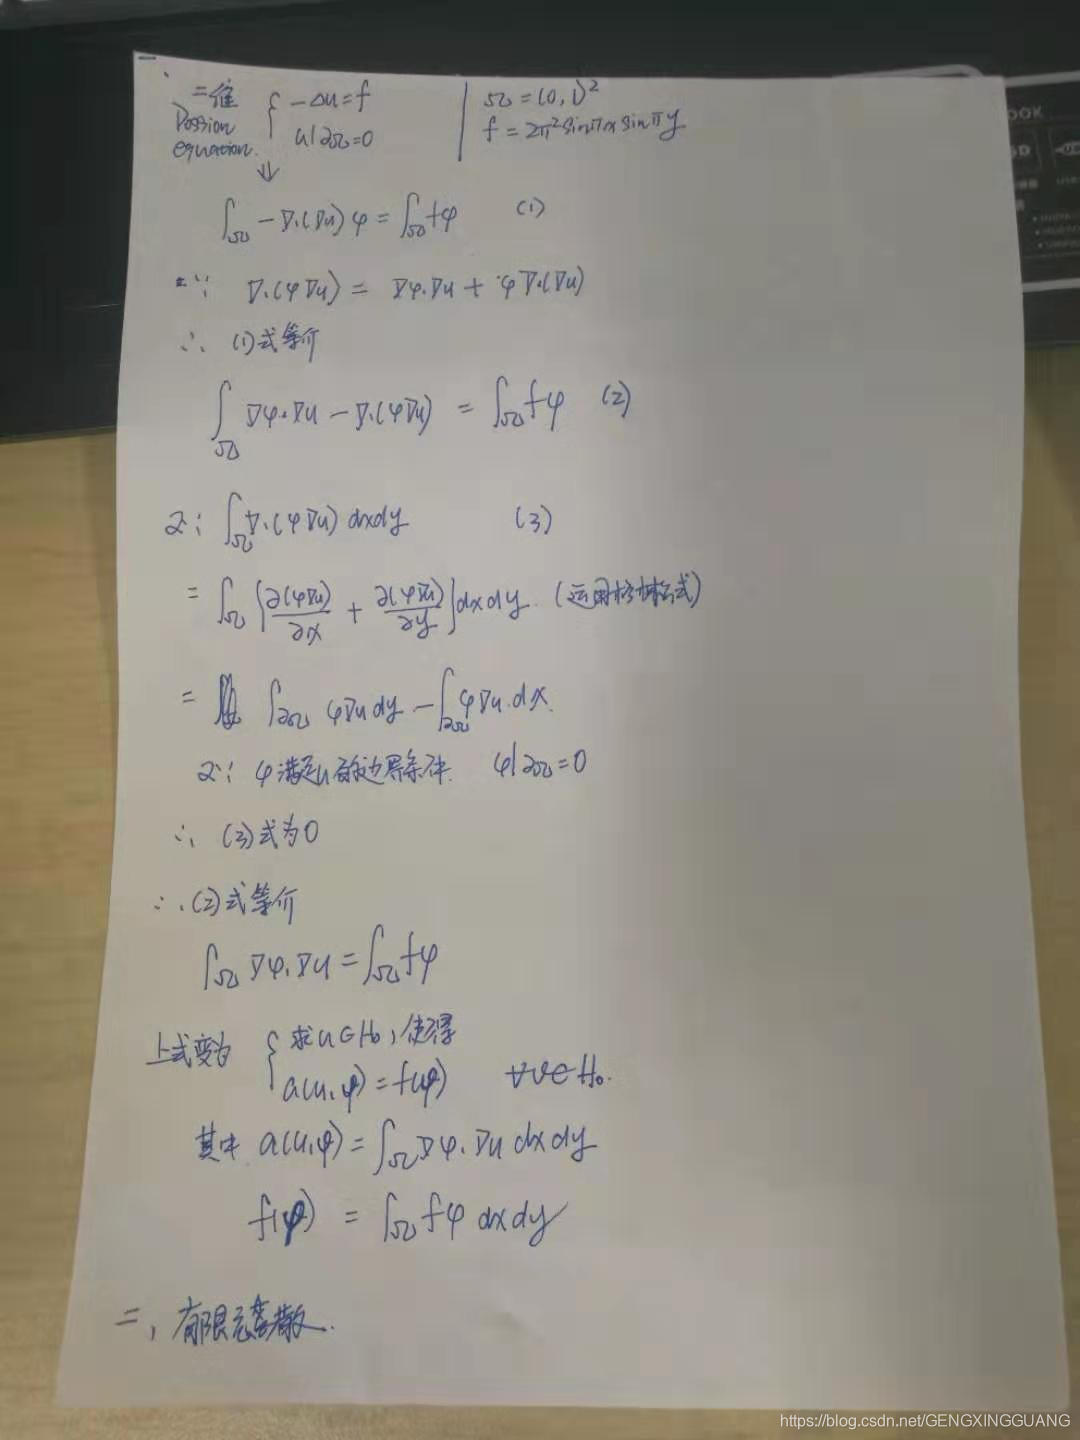 一、
二维 { -Δu = f | Ω = (0,1)²
Possion equation. u|∂Ω = 0 f = 2π² sinπx sinπy
↓
∫_Ω -∇·(∇u) φ = ∫_Ω fφ (1)
∵ ∇·(φ∇u) = ∇φ·∇u + φ∇·(∇u)
∴ (1)式等价
∫_Ω ∇φ·∇u - ∇·(φ∇u) = ∫_Ω fφ (2)
又∵ ∫_Ω ∇·(φ∇u) dxdy (3)
= ∫_Ω [∂(φ∇u)/∂x + ∂(φ∇u)/∂y] dxdy. (运用格林公式)
= ∫_∂Ω φ∇u dy - ∫_∂Ω φ∇u·dx.
又∵ φ满足u的边界条件. φ|∂Ω = 0
∴ (3)式为0
∴ (2)式等价
∫_Ω ∇φ·∇u = ∫_Ω fφ
上式变为 { 求u∈H₀, 使得
a(u,φ) = f(φ) ∀v∈H₀.
其中 a(u,φ) = ∫_Ω ∇φ·∇u dxdy
f(φ) = ∫_Ω fφ dxdy
二、有限元离散.
OOK
https://blog.csdn.net/GENGXINGGUANG